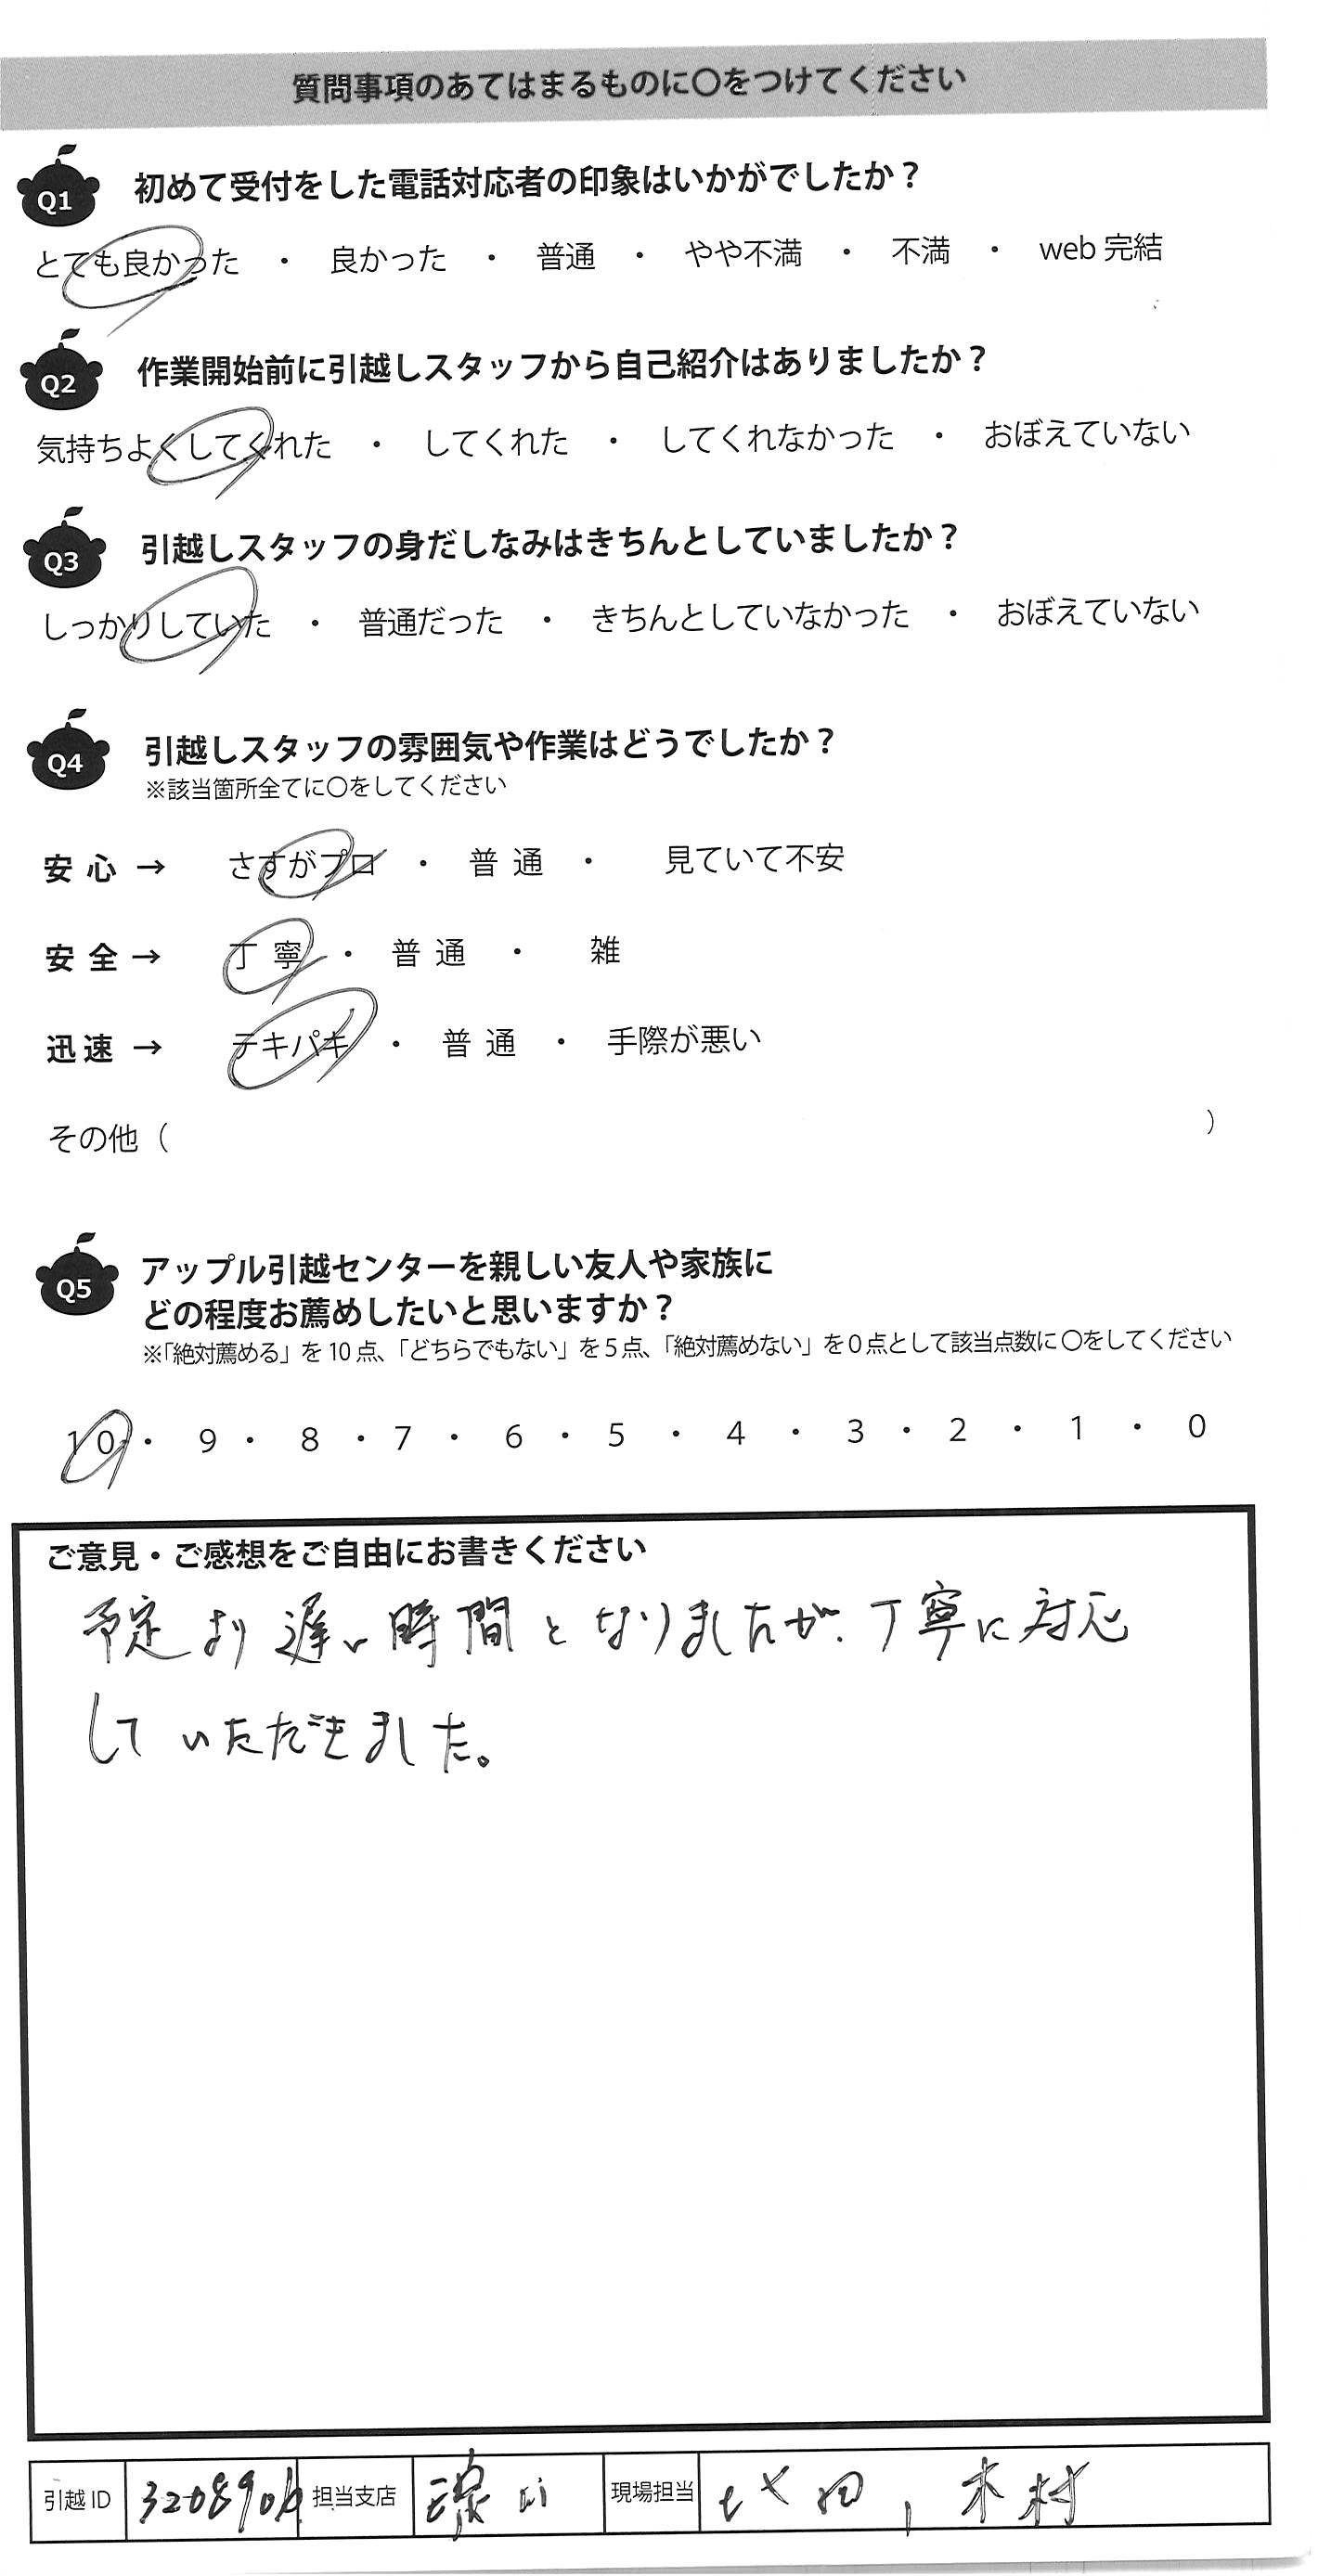 質問事項のあてはまるものに〇をつけてください
Q1 初めて受付をした電話対応者の印象はいかがでしたか？
とても良かった ・ 良かった ・ 普通 ・ やや不満 ・ 不満 ・ web 完結
Q2 作業開始前に引越しスタッフから自己紹介はありましたか？
気持ちよくしてくれた ・ してくれた ・ してくれなかった ・ おぼえていない
Q3 引越しスタッフの身だしなみはきちんとしていましたか？
しっかりしていた ・ 普通だった ・ きちんとしていなかった ・ おぼえていない
Q4 引越しスタッフの雰囲気や作業はどうでしたか？
※該当箇所全てに〇をしてください
安心 → さすがプロ ・ 普通 ・ 見ていて不安
安全 → 丁寧 ・ 普通 ・ 雑
迅速 → テキパキ ・ 普通 ・ 手際が悪い
その他（ ）
Q5 アップル引越センターを親しい友人や家族に
どの程度お薦めしたいと思いますか？
※「絶対薦める」を 10 点、「どちらでもない」を 5 点、「絶対薦めない」を 0 点として該当点数に 〇をしてください
10 ・ 9 ・ 8 ・ 7 ・ 6 ・ 5 ・ 4 ・ 3 ・ 2 ・ 1 ・ 0
ご意見・ご感想をご自由にお書きください
予定より遅い時間となりましたが、丁寧に対応
していただきました。
引越 ID 担当支店 現場担当 木村